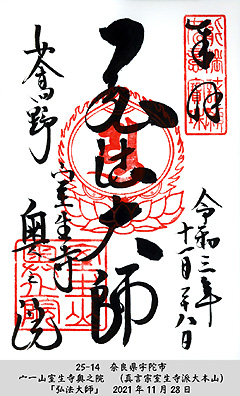 奉拝
令和三年
十一月二十八日
弘法大師
女人高野
宀一山室生寺
奥之院
25-14　奈良県宇陀市
宀一山室生寺奥之院　(真言宗室生寺派大本山)
「弘法大師」　2021年11月28日